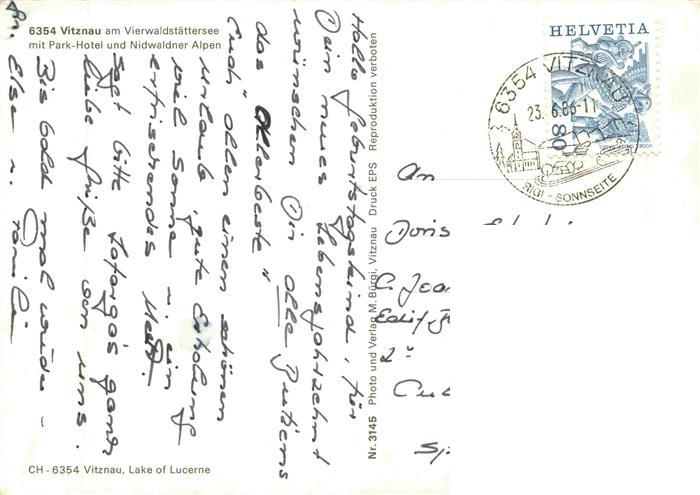 6354 Vitznau am Vierwaldstättersee
mit Park-Hotel und Nidwaldner Alpen
Hallo Geburtstagskind, für
Dein neues Lebensjahrzehnt
wünschen Dir alle Putiems
das Allerbeste"
Euch allen einen schönen
Urlaub, gute Erholung
viel Sonne u. ein
erfrischendes Meer.
Sagt bitte ganz
liebe Grüße von uns.
Bis bald mal wieder -
Else u. Familie
CH - 6354 Vitznau, Lake of Lucerne
Nr. 3145 Photo und Verlag M. Bürgi, Vitznau Druck EPS Reproduktion verboten
HELVETIA
80
6354 VITZNAU
23.6.86-11
RIGI - SONNSEITE
An
Doris
C. Joa
Edif.
2°